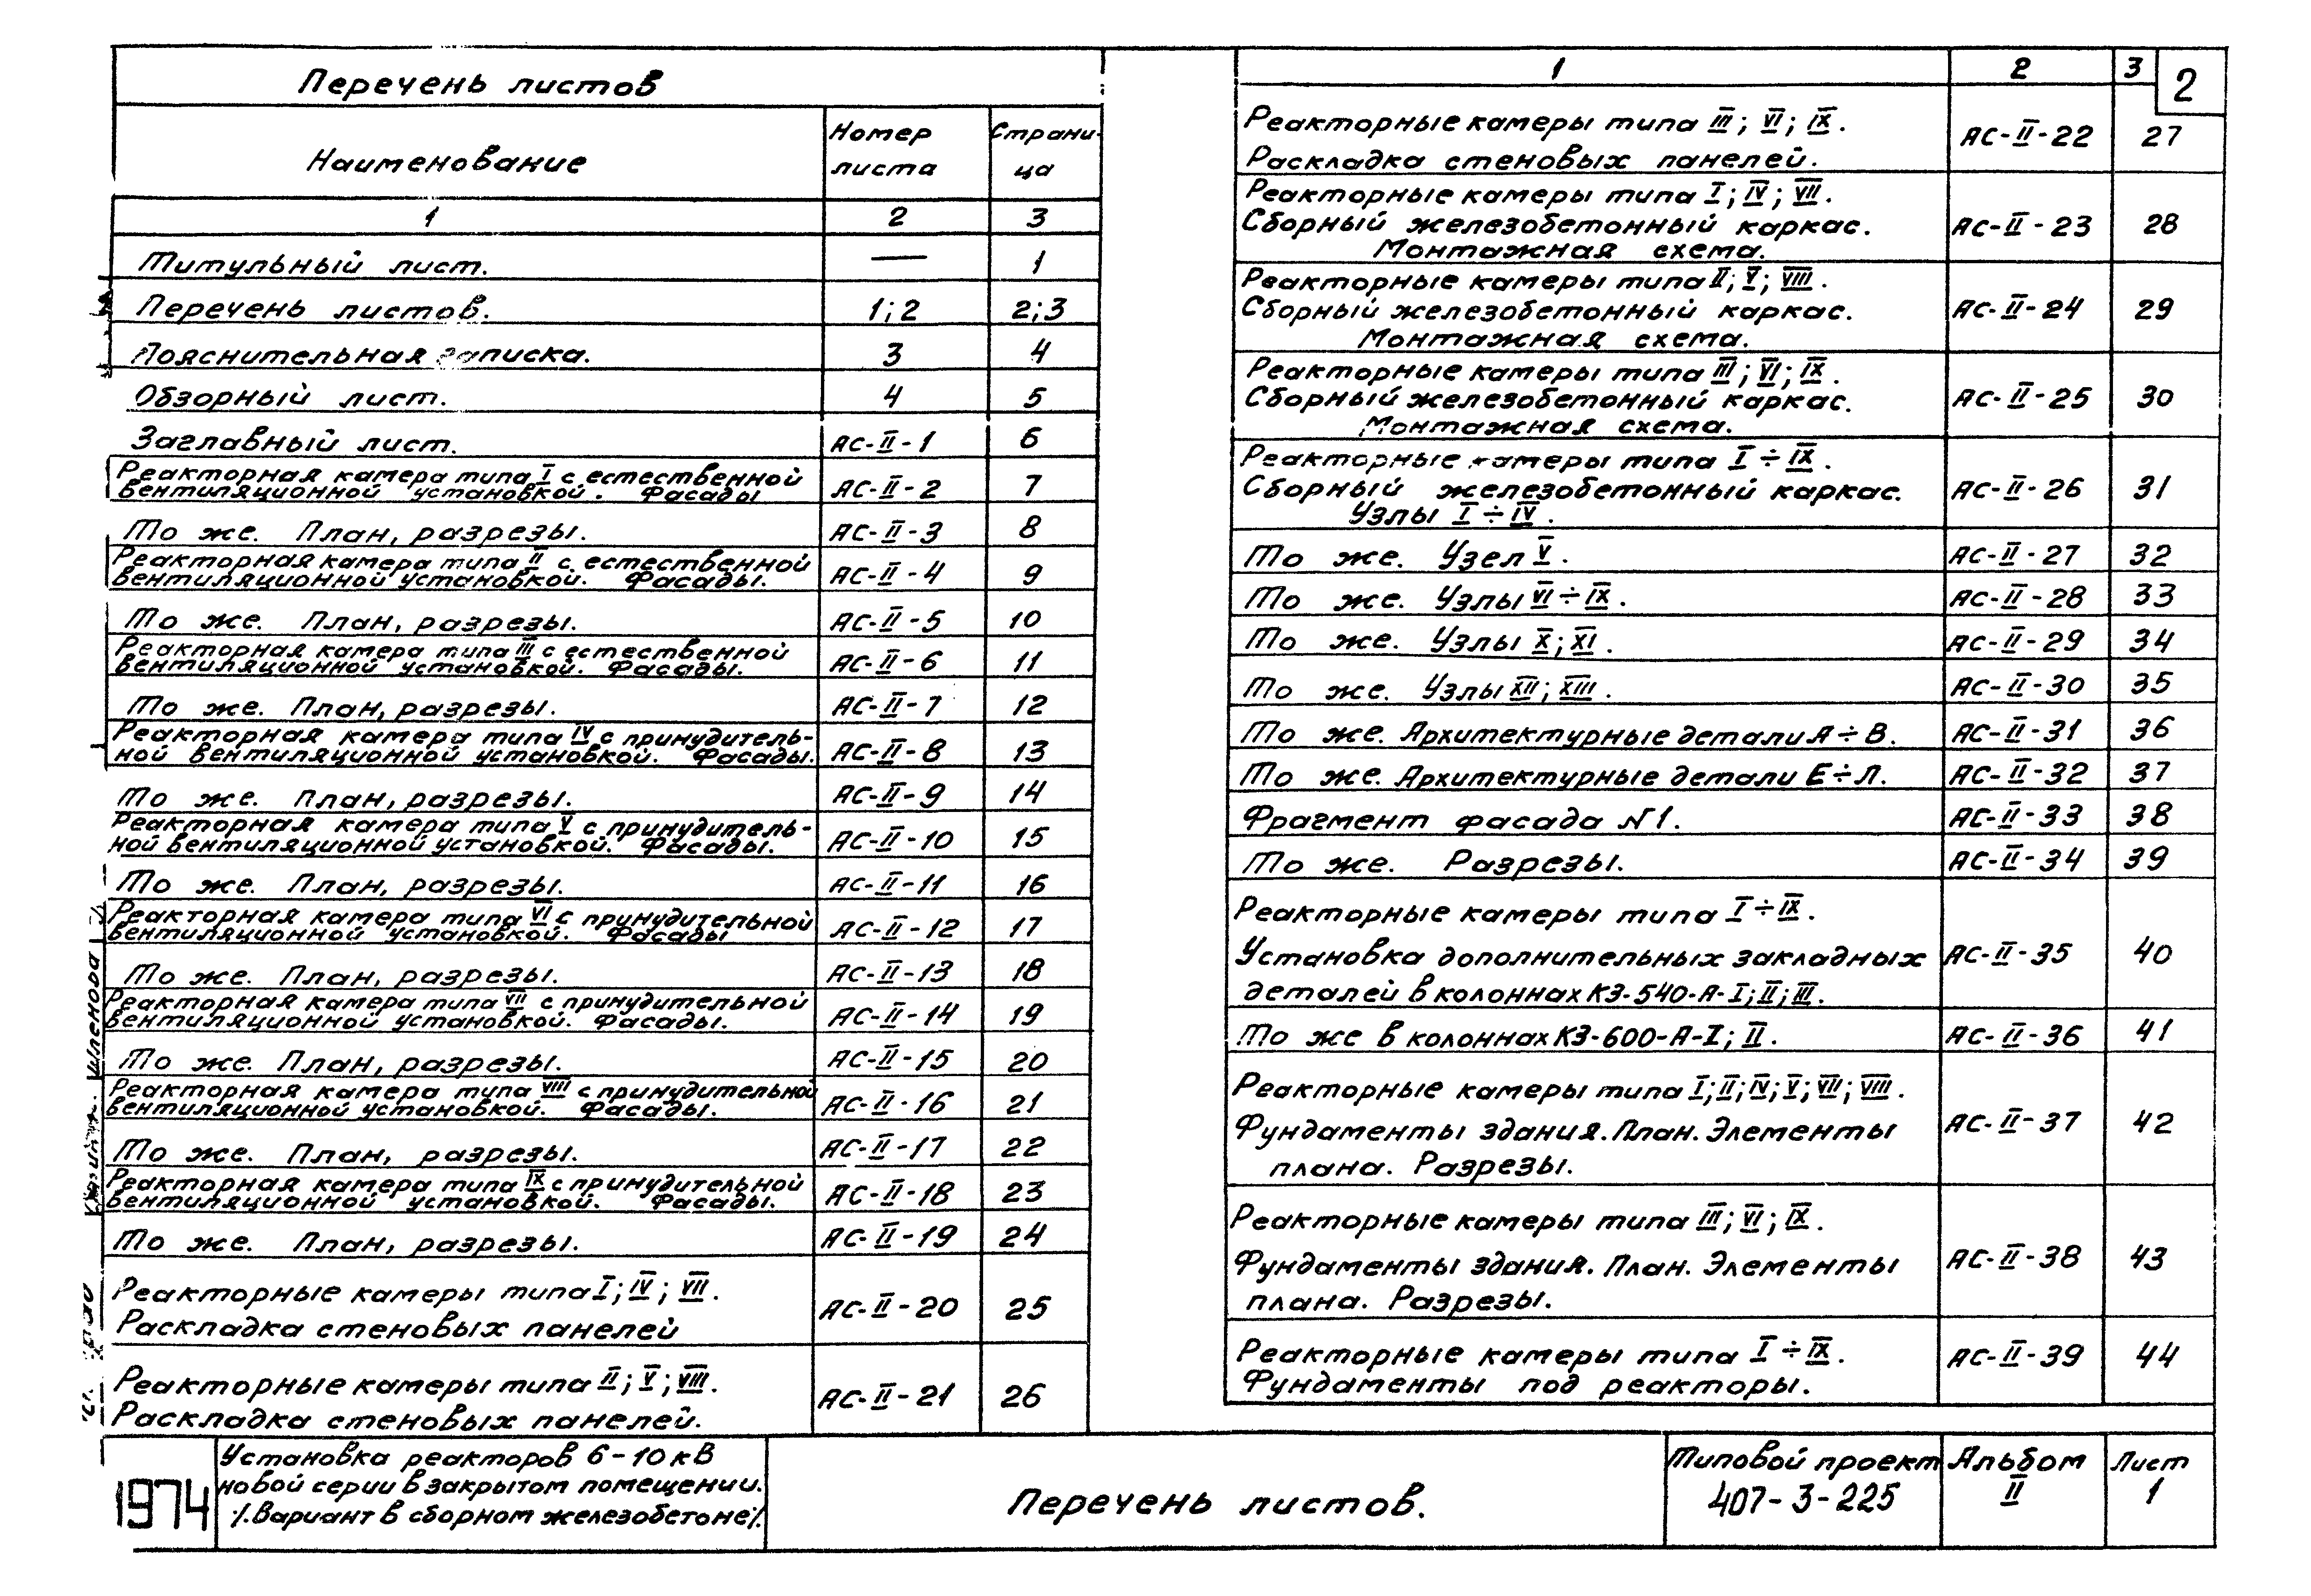 Перечень листов
Наименование
Номер листа
Страни-ца
1 2 3
Титульный лист. — 1
Перечень листов. 1;2 2;3
Пояснительная записка. 3 4
Обзорный лист. 4 5
Заглавный лист. АС-II-1 6
Реакторная камера типа I с естественной
вентиляционной установкой. Фасады АС-II-2 7
То же. План, разрезы. АС-II-3 8
Реакторная камера типа II с естественной
вентиляционной установкой. Фасады. АС-II-4 9
То же. План, разрезы. АС-II-5 10
Реакторная камера типа III с естественной
вентиляционной установкой. Фасады. АС-II-6 11
То же. План, разрезы. АС-II-7 12
Реакторная камера типа IV с принудитель-
ной вентиляционной установкой. Фасады. АС-II-8 13
То же. План, разрезы. АС-II-9 14
Реакторная камера типа V с принудитель-
ной вентиляционной установкой. Фасады. АС-II-10 15
То же. План, разрезы. АС-II-11 16
Реакторная камера типа VI с принудительной
вентиляционной установкой. Фасады АС-II-12 17
То же. План, разрезы. АС-II-13 18
Реакторная камера типа VII с принудительной
вентиляционной установкой. Фасады. АС-II-14 19
То же. План, разрезы. АС-II-15 20
Реакторная камера типа VIII с принудительной
вентиляционной установкой. Фасады. АС-II-16 21
То же. План, разрезы. АС-II-17 22
Реакторная камера типа IX с принудительной
вентиляционной установкой. Фасады. АС-II-18 23
То же. План, разрезы. АС-II-19 24
Реакторные камеры типа I; IV; VII.
Раскладка стеновых панелей АС-II-20 25
Реакторные камеры типа II; V; VIII.
Раскладка стеновых панелей. АС-II-21 26
1 2 3
2
Реакторные камеры типа III; VI; IX.
Раскладка стеновых панелей. АС-II-22 27
Реакторные камеры типа I; IV; VII.
Сборный железобетонный каркас. АС-II-23 28
Монтажная схема.
Реакторные камеры типа II; V; VIII.
Сборный железобетонный каркас. АС-II-24 29
Монтажная схема.
Реакторные камеры типа III; VI; IX.
Сборный железобетонный каркас. АС-II-25 30
Монтажная схема.
Реакторные камеры типа I÷IX.
Сборный железобетонный каркас. АС-II-26 31
Узлы I÷IV.
То же. Узел V. АС-II-27 32
То же. Узлы VI÷IX. АС-II-28 33
То же. Узлы X; XI. АС-II-29 34
То же. Узлы XII; XIII. АС-II-30 35
То же. Архитектурные детали А÷В. АС-II-31 36
То же. Архитектурные детали Е÷Л. АС-II-32 37
Фрагмент фасада N1. АС-II-33 38
То же. Разрезы. АС-II-34 39
Реакторные камеры типа I÷IX.
Установка дополнительных закладных АС-II-35 40
деталей в колоннах КЭ-540-А-I; II; III.
То же в колоннах КЭ-600-А-I; II. АС-II-36 41
Реакторные камеры типа I; II; IV; V; VII; VIII.
Фундаменты здания. План. Элементы АС-II-37 42
плана. Разрезы.
Реакторные камеры типа III; VI; IX.
Фундаменты здания. План. Элементы АС-II-38 43
плана. Разрезы.
Реакторные камеры типа I÷IX. АС-II-39 44
Фундаменты под реакторы.
Шленова
1974
Установка реакторов 6-10кВ
новой серии в закрытом помещении.
/.Вариант в сборном железобетоне/.
Перечень листов.
Типовой проект
407-3-225
Альбом
II
Лист
1